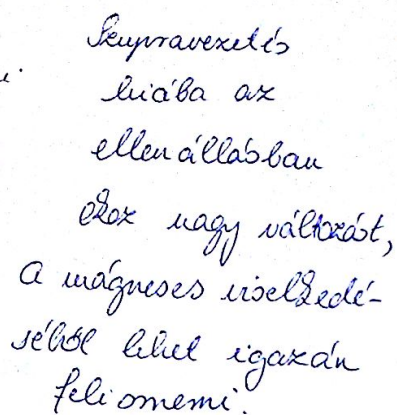 Szupravezetés
hiába az
ellenállásban
okoz nagy változást,
a mágneses viselkedé-
séből lehet igazán
felismerni.